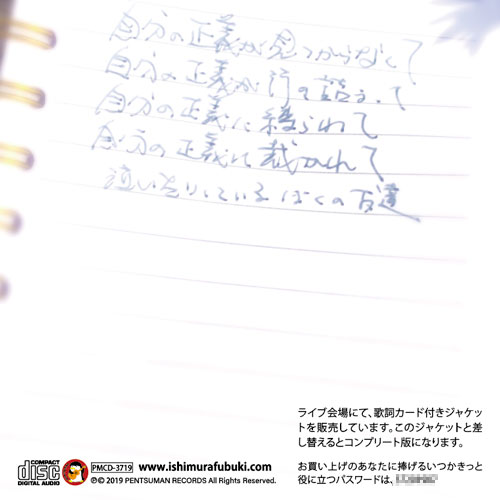 自分の正義が見つからなくて
自分の正義が行き詰まって
自分の正義に縛られて
自分の正義に裁かれて
泣いたりしているぼくの友達
ライブ会場にて、歌詞カード付きジャケッ
トを販売しています。このジャケットと差
し替えるとコンプリート版になります。
お買い上げのあなたに捧げるいつかきっと
役に立つパスワードは、
COMPACT
disc
DIGITAL AUDIO
PMCD-3719
www.ishimurafubuki.com
℗© 2019 PENTSUMAN RECORDS All Rights Reserved.